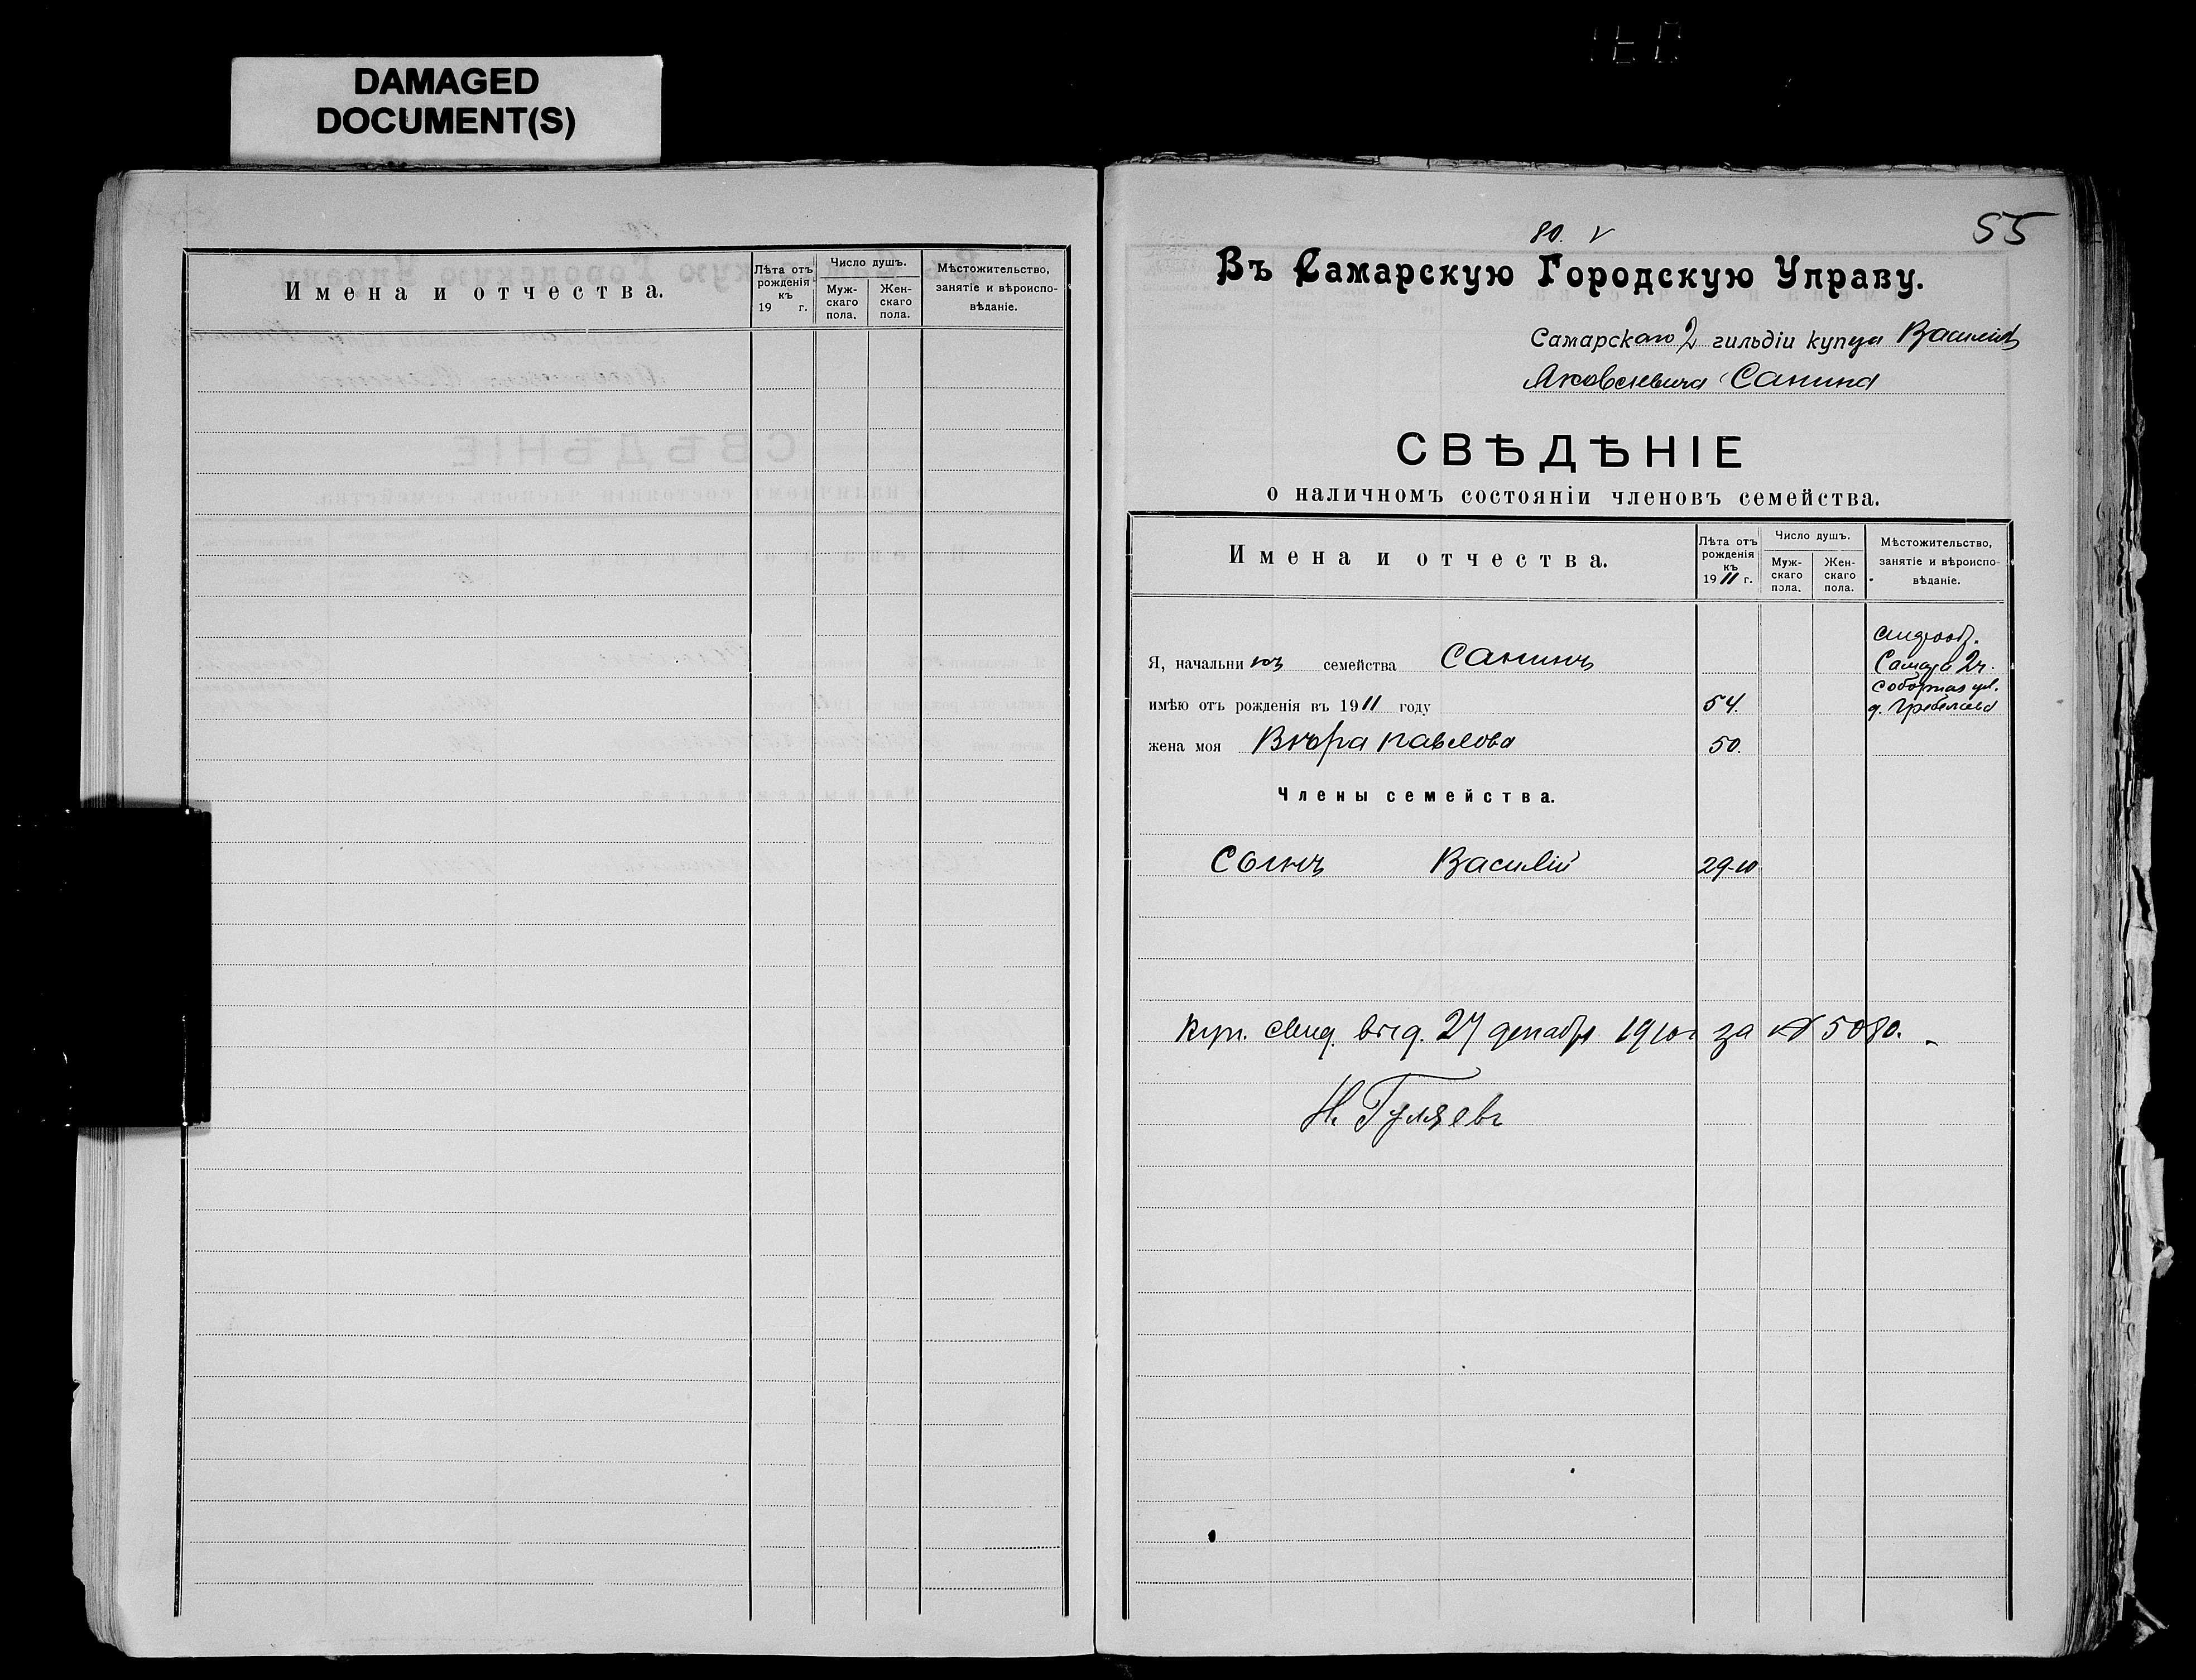 DAMAGED
DOCUMENT(S)
Имена и отчества.
Лѣта отъ рожденія къ 19 г.
Число душъ.
Муж-скаго пола.
Жен-скаго пола.
Мѣстожительство, занятіе и вѣроиспо-вѣданіе.
80. V
55
Въ Самарскую Городскую Управу.
Самарскаго 2 гильдіи купца Василія
Яковлевича Санина
СВѢДѢНІЕ
о наличномъ состояніи членовъ семейства.
Имена и отчества.
Лѣта отъ рожденія къ 1911 г.
Число душъ.
Муж-скаго пола.
Жен-скаго пола.
Мѣстожительство, занятіе и вѣроиспо-вѣданіе.
Я, начальникъ семейства Санинъ
Самара 2ч.
Соборная ул.
имѣю отъ рожденія въ 1911 году 54.
д.
жена моя Вѣра Павлова 50.
Члены семейства.
Сынъ Василій 29-10
Куп. свид. выд. 27 декабря 1910 г за № 5080.
Н. Гуляевъ